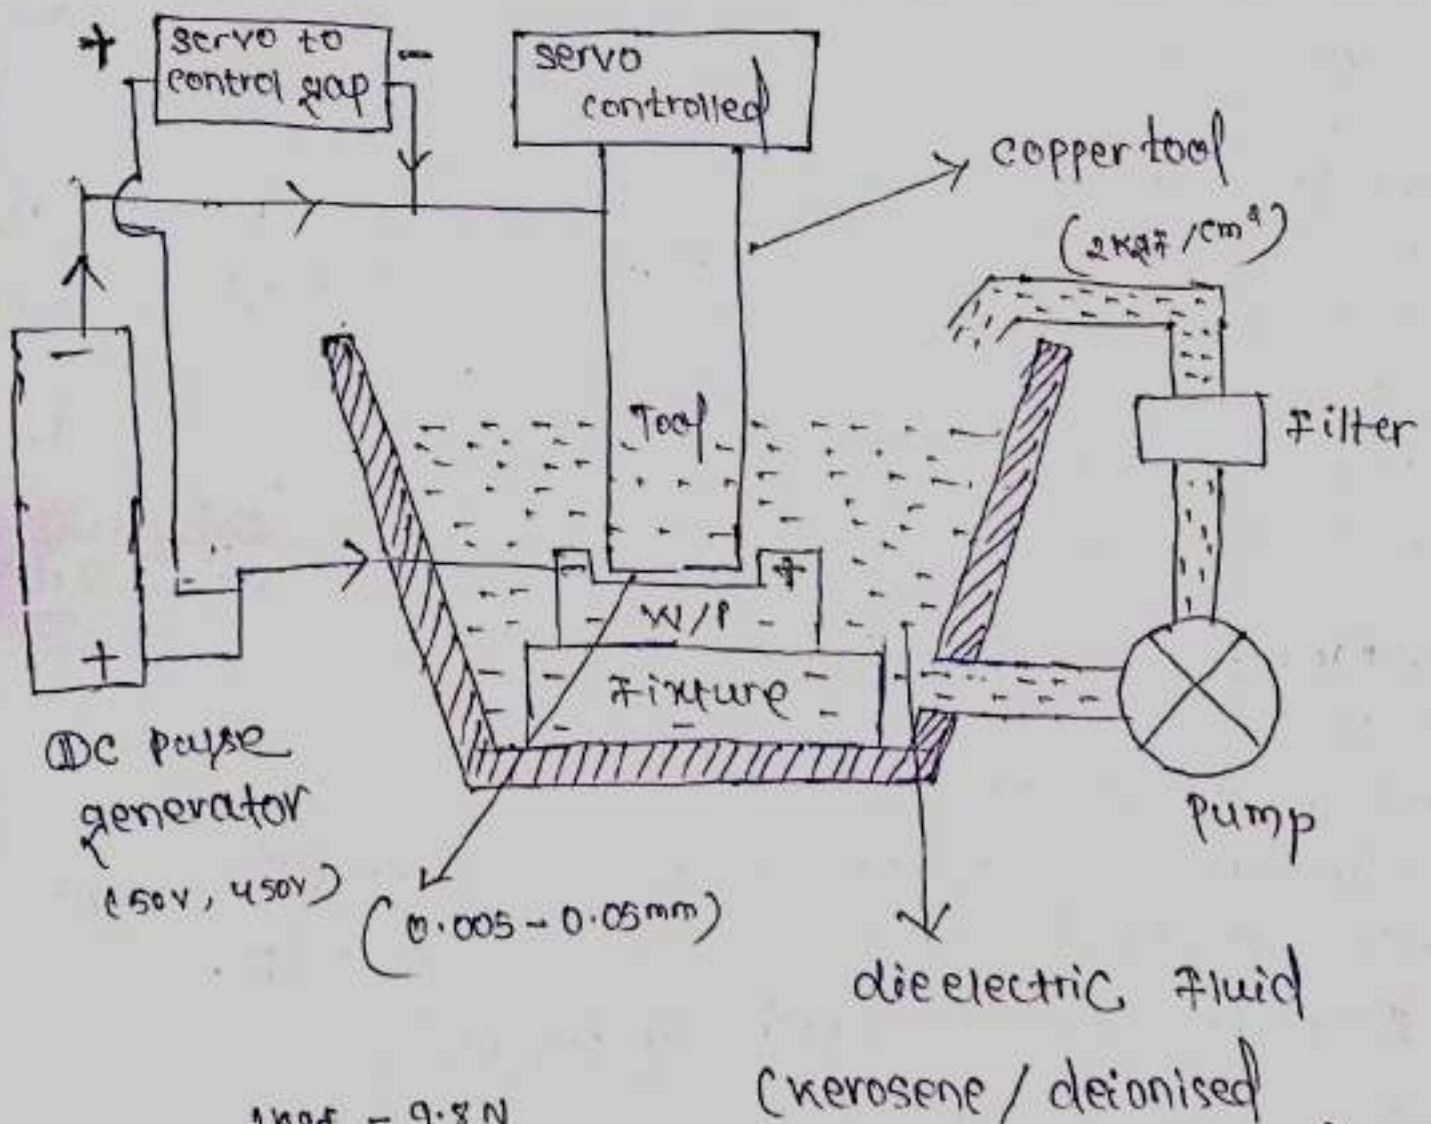 +
servo to
control gap
-
servo
controlled
copper tool
(2Kgf/cm²)
Tool
Filter
-
+
W/P
Fixture
-
+
DC pulse
generator
(50V, 450V)
(0.005 - 0.05mm)
Pump
dielectric Fluid
(kerosene / deionised
1kgf = 9.8N